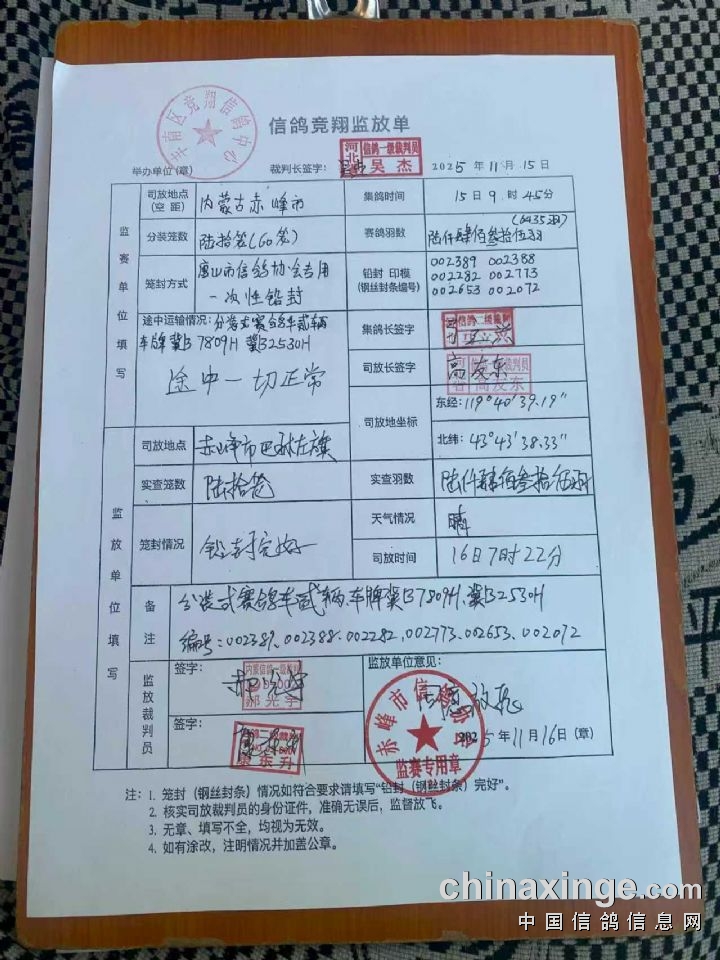 信鸽竞翔监放单
丰南区竞翔信鸽中心
举办单位(章)
裁判长签字:
河北
信鸽一级裁判员
吴杰
2025年11月15日
监赛单位填写
司放地点(空距)
内蒙古赤峰市
集鸽时间
15日9时45分
分装笼数
陆拾笼(60笼)
赛鸽羽数
(6435羽)
陆仟肆佰叁拾伍羽
笼封方式
唐山市信鸽协会专用
一次性铅封
铅封 印模
(钢丝封条编号)
002389 002388
002282 002773
002653 002072
途中运输情况:分装式赛鸽车贰辆
车牌冀B7809H 冀B2530H
途中一切正常
集鸽长签字
信鸽二级裁判
司放长签字
高友东
司放地坐标
东经:119°40'39.19"
北纬:43°43'38.33"
监放单位填写
司放地点
赤峰市巴林左旗
实查笼数
陆拾笼
实查羽数
陆仟肆佰叁拾伍羽
笼封情况
铅封完好
天气情况
晴
司放时间
16日7时22分
备注
分装式赛鸽车贰辆、车牌冀B7809H、冀B2530H
编号:002389、002388、002282、002773、002653、002072
监放裁判员
签字:
内蒙信鸽一级裁判
郝光宇
签字:
东升
监放单位意见:
同意放飞
赤峰市信鸽协会
监赛专用章
2025年11月16日(章)
注:1. 笼封(钢丝封条)情况如符合要求请填写"铅封(钢丝封条)完好"。
2. 核实司放裁判员的身份证件,准确无误后,监督放飞。
3. 无章、填写不全,均视为无效。
4. 如有涂改,注明情况并加盖公章。
chinaxinge.com
中国信鸽信息网